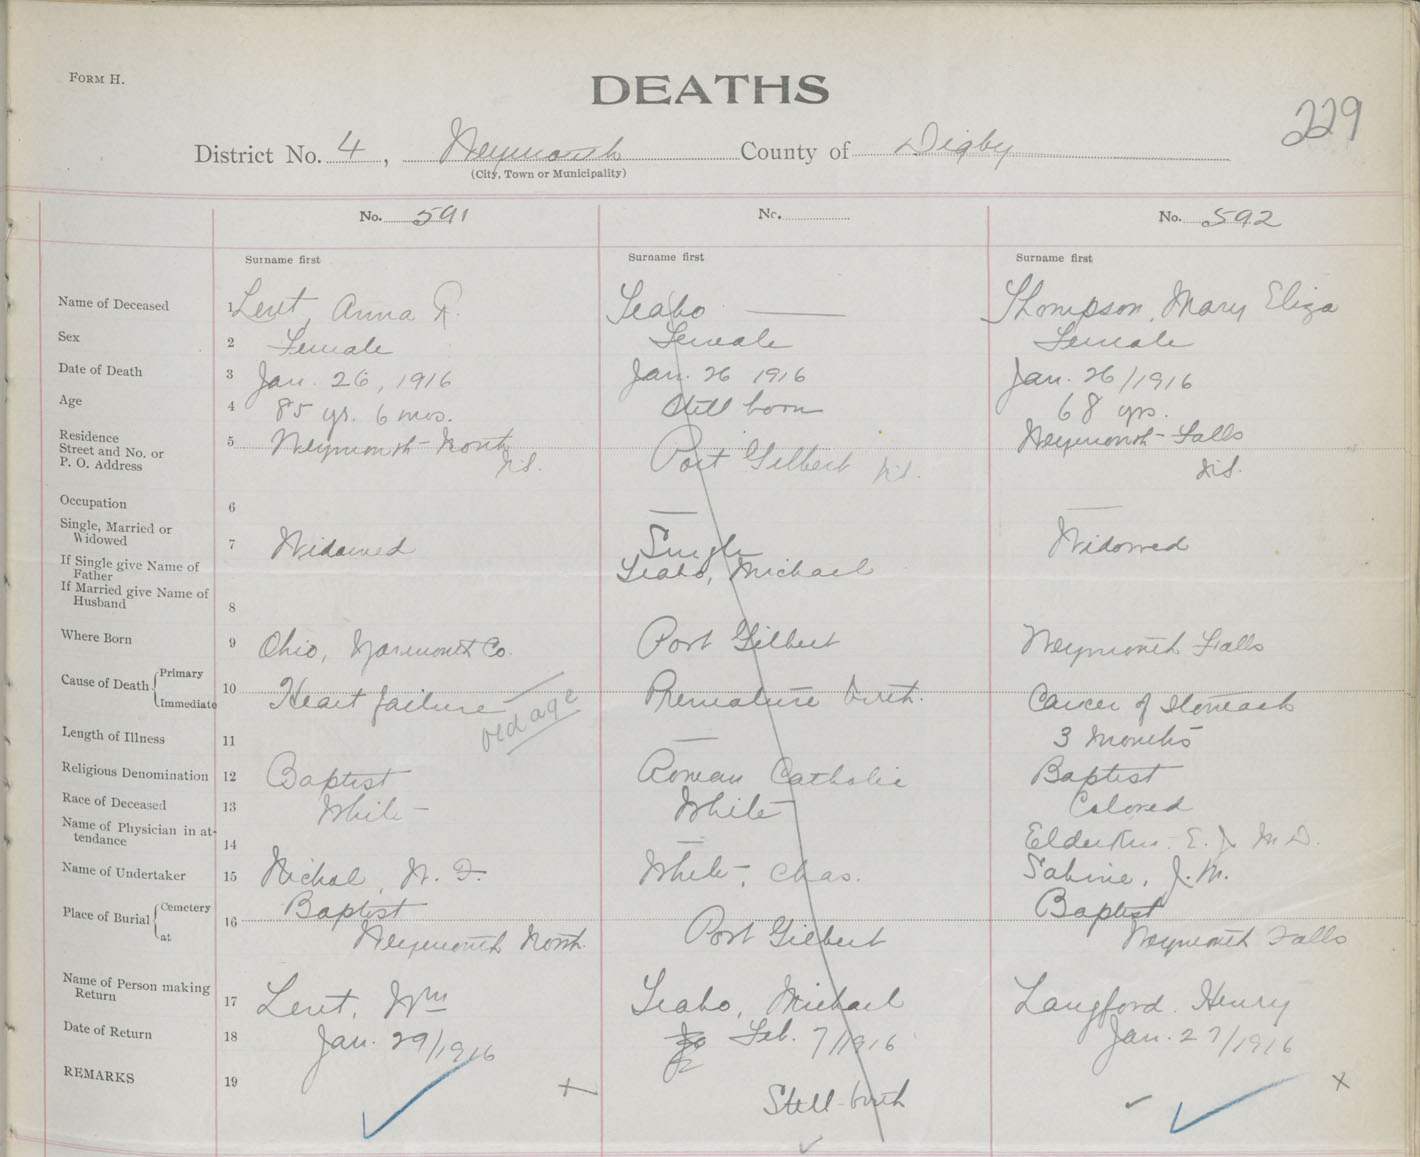 FORM H.
DEATHS
229
District No. 4, Weymouth County of Digby
(City, Town or Municipality)
No. 591 No. No. 592
Surname first Surname first Surname first
Name of Deceased 1 Lent, Anna R. Thompson, Mary Eliza
Sex 2 Female Female Female
Date of Death 3 Jan. 26, 1916 Jan. 26 1916 Jan. 26/1916
Age 4 85 yr. 6 mos. Still born 68 yrs.
Residence
Street and No. or
P. O. Address 5 Weymouth North N.S. Port Gilbert N.S. Weymouth Falls N.S.
Occupation 6 — —
Single, Married or
Widowed 7 Widowed Single Widowed
If Single give Name of
Father Michael
If Married give Name of
Husband 8
Where Born 9 Ohio, Yarmouth Co. Port Gilbert Weymouth Falls
Cause of Death { Primary
Immediate 10 Heart failure — old age Premature birth. Cancer of Stomach
Length of Illness 11 — 3 Months
Religious Denomination 12 Baptist Roman Catholic Baptist
Race of Deceased 13 White — White Colored
Name of Physician in at-
tendance 14 — Elderkin. E. J. M.D.
Name of Undertaker 15 Nichol, W. F. White, Chas. Sabine, J. M.
Place of Burial { Cemetery 16 Baptist Baptist
at Weymouth North. Port Gilbert Weymouth Falls
Name of Person making
Return 17 Lent, Wm Michael Langford. Henry
Date of Return 18 Jan. 29/1916 Feb. 7/1916 Jan. 27/1916
REMARKS 19 x Still-birth x